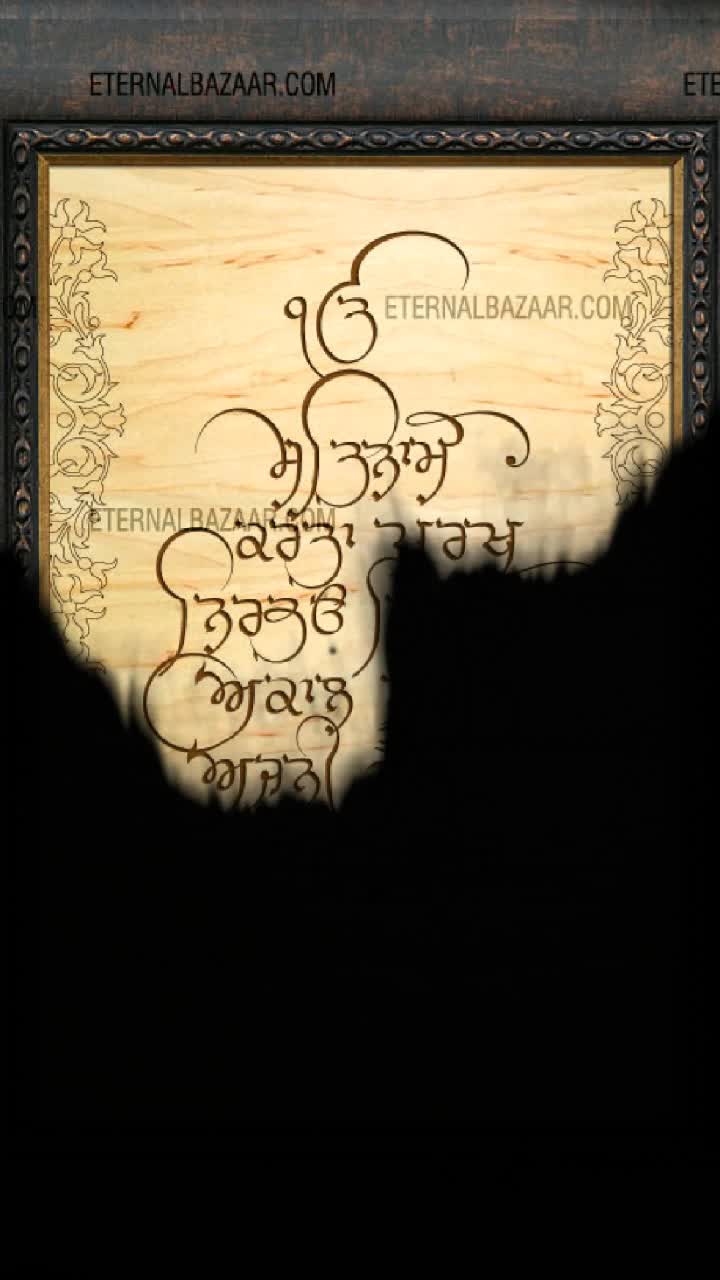 ETERNALBAZAAR.COM
ੴ
ETERNALBAZAAR.COM
ਸਤਿਨਾਮੁ
ETERNALBAZAAR.COM
ਕਰਤਾ ਪੁਰਖੁ
ਨਿਰਭਉ
ਅਕਾਲ
ਅਜੂਨੀ